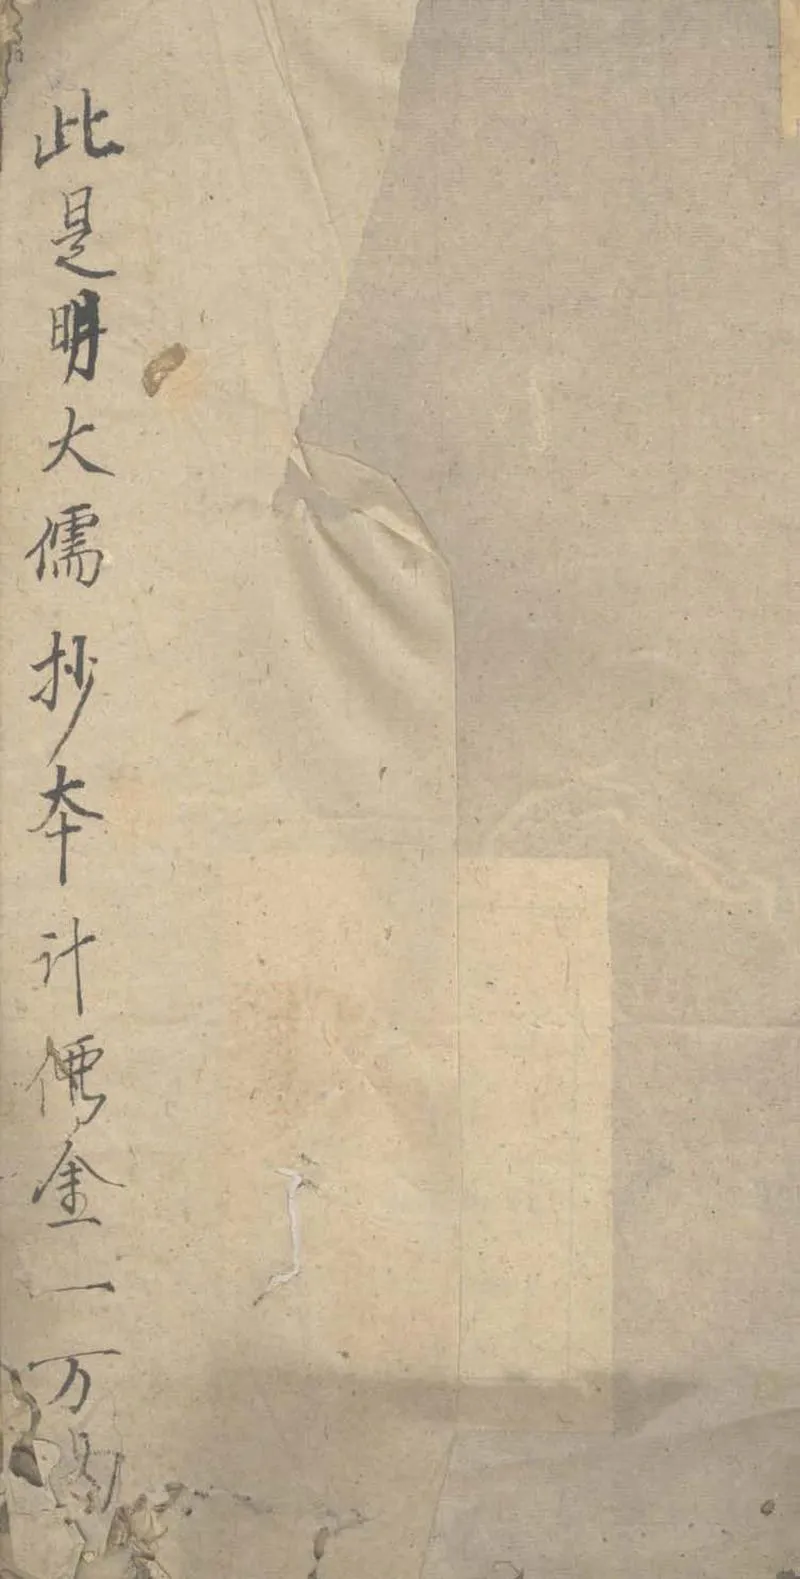 此是明大儒抄夲計價金一万